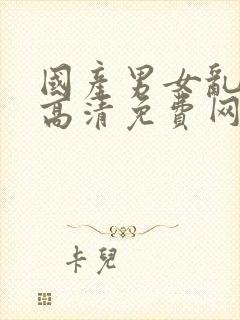 國產男女亂
高清免費网
卡兒